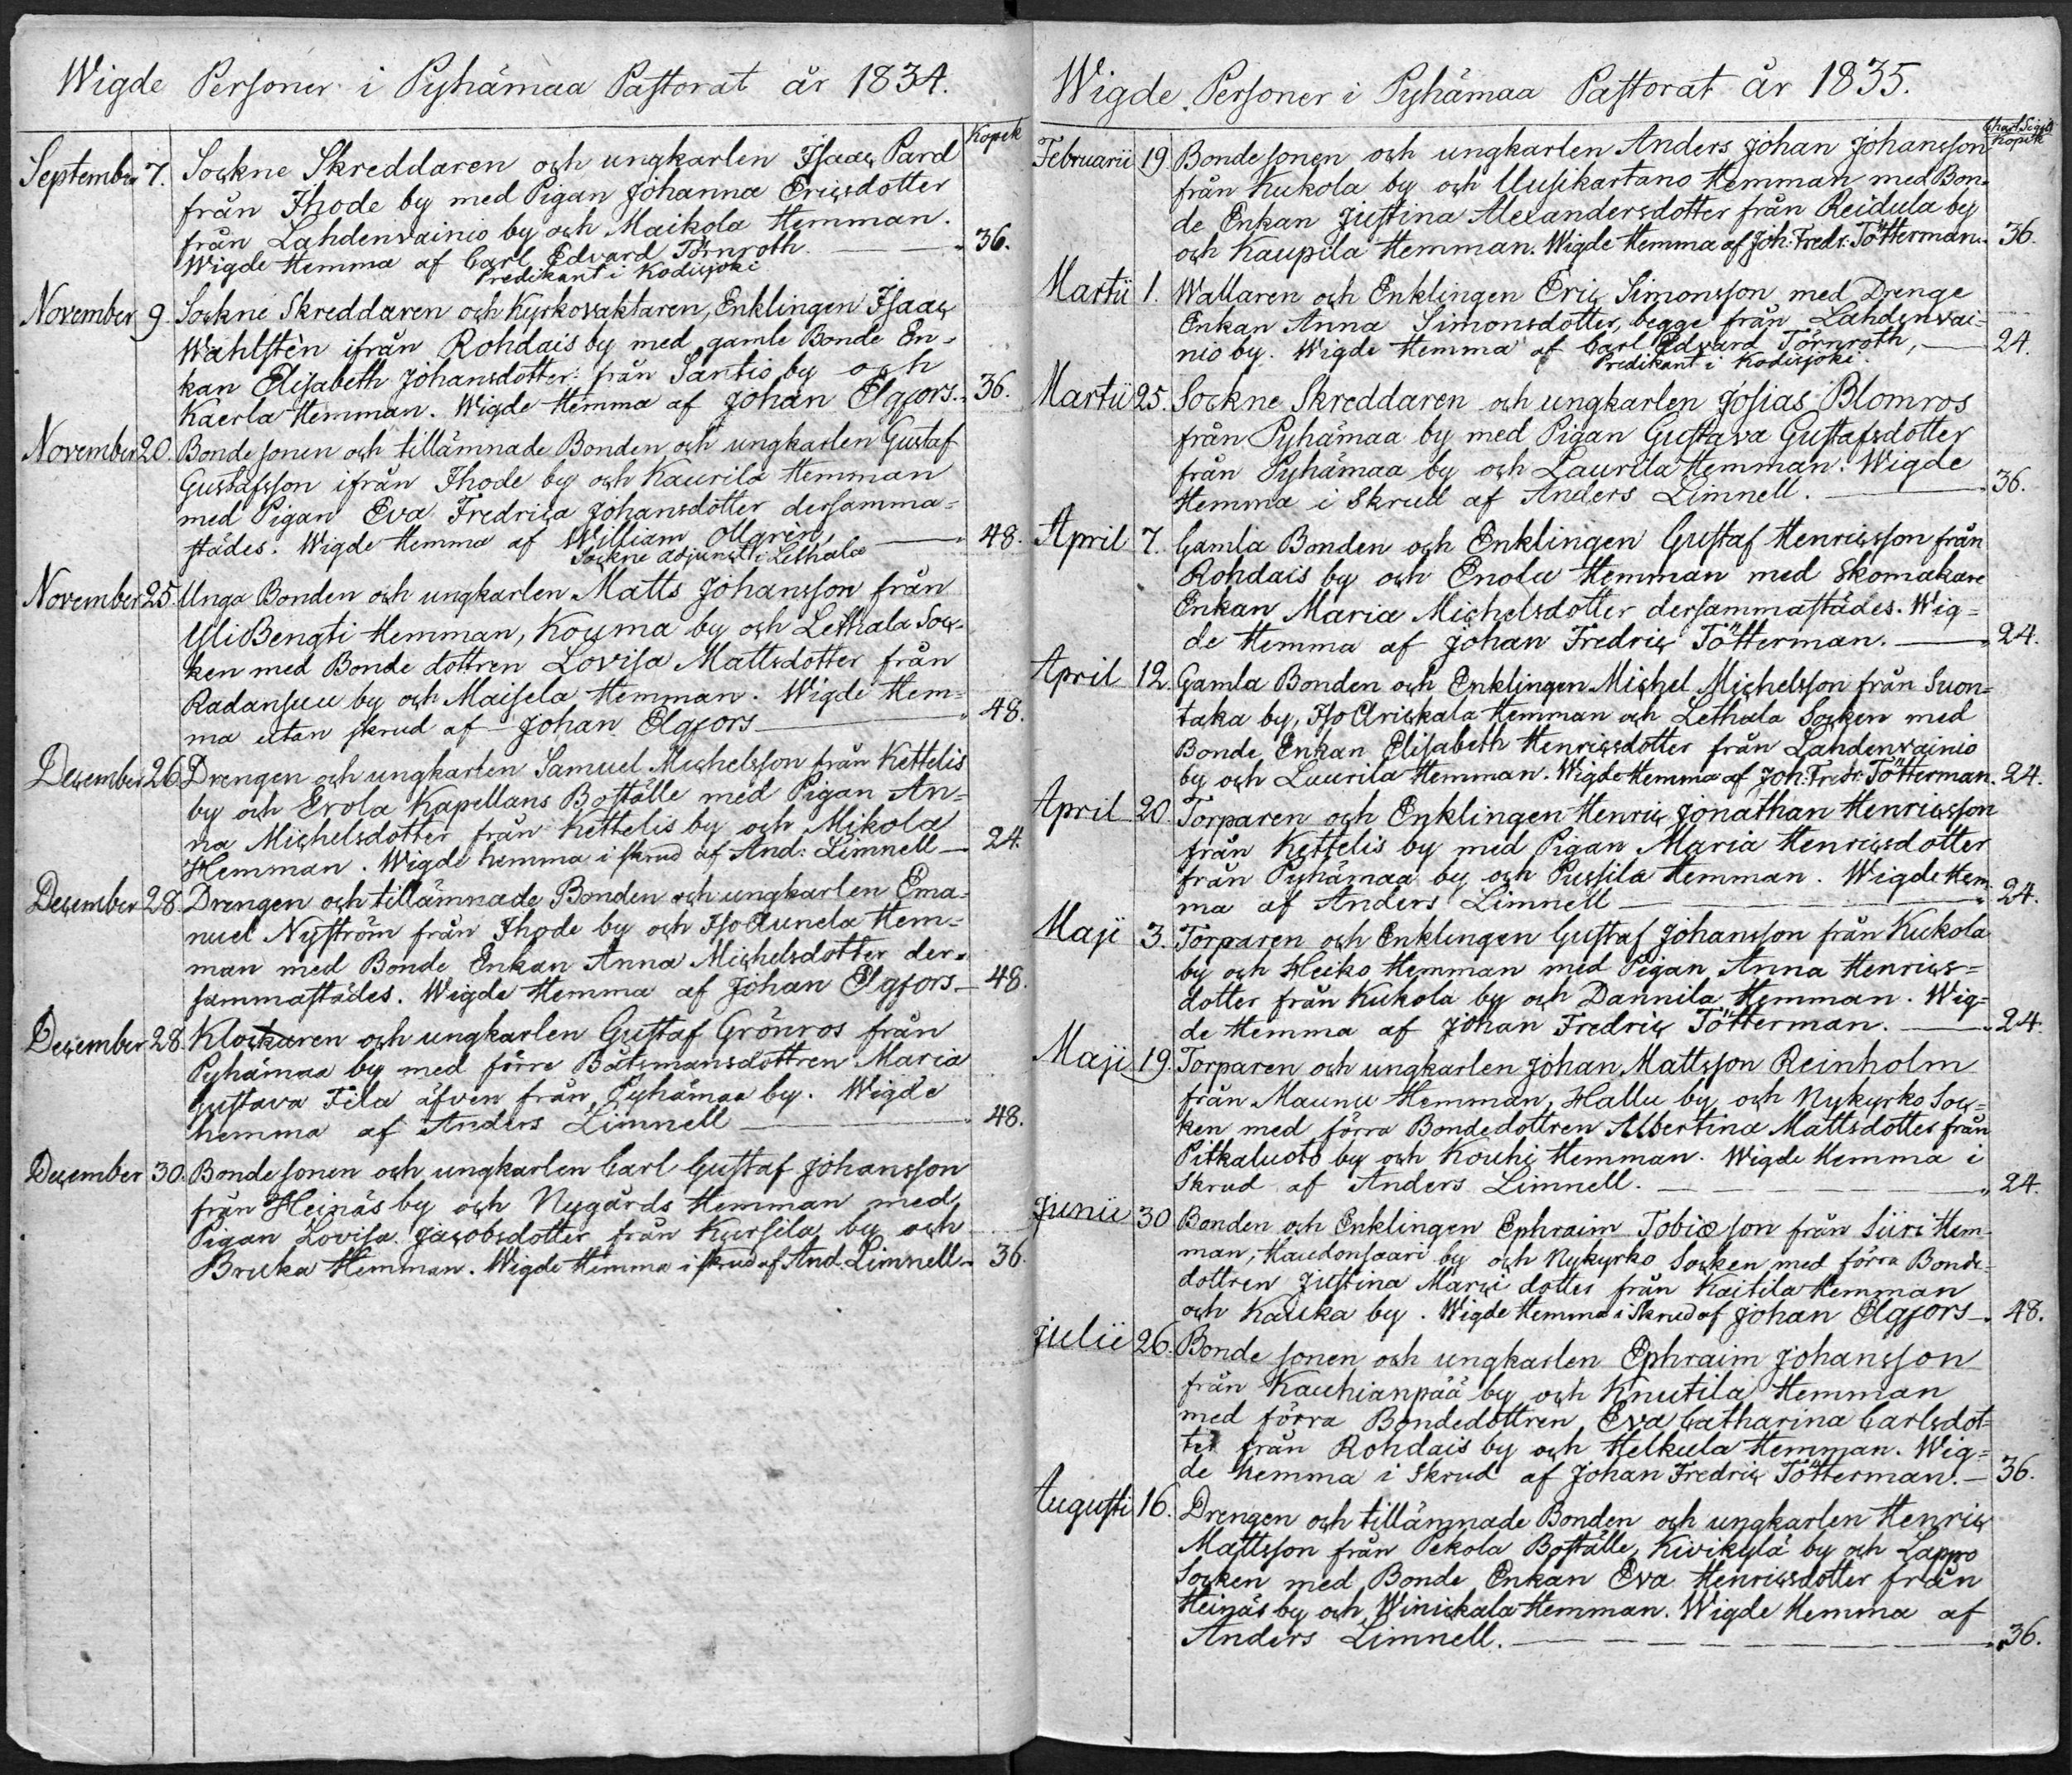 Wigde Personer i Pyhämaa Pastorat år 1834.
Kopek
September 7. Sockne Skreddaren och ungkarlen Isaac Pard
från Ihode by med Pigan Johanna Ericsdotter
från Lahdenvainio by och Maikola Hemman.
Wigde Hemma af Carl Edvard Törnroth. 36.
Predikant i Kodisjoki
November 9. Sockne Skreddaren och Kyrkovaktaren, Enklingen Isaac
Wahlstèn ifrån Rohdais by med gamle Bonde En-
kan Elisabeth Johansdotter från Santio by och
Kaerla Hemman. Wigde Hemma af Johan Elgfors. 36.
November 20. Bonde sonen och tillämnade Bonden och ungkarlen Gustaf
Gustafsson ifrån Ihode by och Kaurila Hemman
med Pigan Eva Fredrica Johansdotter dersamma-
städes. Wigde Hemma af William Ollgrèn, 48.
Sockne adjunct i Lethala
November 25. Unga Bonden och ungkarlen Matts Johansson från
Yli Bengti Hemman, Kouma by och Lethala Soc-
ken med Bonde dottren Lovisa Mattsdotter från
Radansuu by och Maisela Hemman. Wigde Hem-
ma utan skrud af Johan Elgfors 48.
December 26. Drengen och ungkarlen Samuel Michelsson från Kettelis
by och Erola Kapellans Boställe med Pigan An-
na Michelsdotter från Kettelis by och Mikola
Hemman. Wigde hemma i skrud af And: Limnell 24.
December 28. Drengen och tillämnade Bonden och ungkarlen Ema-
nuel Nyström från Ihode by och Iso Aunela Hem-
man med Bonde Enkan Anna Michelsdotter der-
sammastädes. Wigde Hemma af Johan Elgfors 48.
December 28. Klockaren och ungkarlen Gustaf Grönros från
Pyhämaa by med förre Båtsmansdottren Maria
Gustava Fila äfven från Pyhämaa by. Wigde
hemma af Anders Limnell 48.
December 30. Bonde sonen och ungkarlen Carl Gustaf Johansson
från Heinäs by och Nygårds Hemman med
Pigan Lovisa Jacobsdotter från Kursila by och
Bruka Hemman. Wigde Hemma i skrud af And. Limnell 36.
Wigde Personer i Pyhämaa Pastorat år 1835.
Kopek
Februarii 19. Bonde sonen och ungkarlen Anders Johan Johansson
från Kukola by och Uusikartano Hemman med Bon-
de Enkan Justina Alexandersdotter från Reidula by
och Kaupila Hemman. Wigde Hemma af Joh: Fredr: Tötterman 36.
Martii 1. Wallaren och Enklingen Eric Simonsson med Drenge
Enkan Anna Simonsdotter, begge från Lahdenvai-
nio by. Wigde Hemma af Carl Edvard Törnroth, 24.
Predikant i Kodisjoki.
Martii 25. Sockne Skreddaren och ungkarlen Josias Blomros
från Pyhämaa by med Pigan Gustava Gustafsdotter
från Pyhämaa by och Laurila Hemman. Wigde
Hemma i Skrud af Anders Limnell. 36.
April 7. Gamla Bonden och Enklingen Gustaf Henricsson från
Rohdais by och Enola Hemman med Skomakare
Enkan Maria Michelsdotter dersammastädes. Wig-
de Hemma af Johan Fredric Tötterman. 24.
April 12. Gamla Bonden och Enklingen Michel Michelsson från Suon-
taka by, Iso Urickala Hemman och Lethala Socken med
Bonde Enkan Elisabeth Henricsdotter från Lahdenvainio
by och Laurila Hemman. Wigde Hemma af Joh: Fredr: Tötterman. 24.
April 20. Torparen och Enklingen Henric Jonathan Henricsson
från Kettelis by med Pigan Maria Henricsdotter
från Pyhämaa by och Pussila Hemman. Wigde Hem-
ma af Anders Limnell 24.
Maji 3. Torparen och Enklingen Gustaf Johansson från Kukola
by och Heiko Hemman med Pigan Anna Henrics-
dotter från Kukola by och Dannila Hemman. Wig-
de Hemma af Johan Fredric Tötterman. 24.
Maji 19. Torparen och ungkarlen Johan Mattsson Reinholm
från Maunu Hemman, Hallu by och Nykyrko Soc-
ken med förra Bondedottren Albertina Mattsdotter från
Pitkaluoto by och Kouhi Hemman. Wigde Hemma i
Skrud af Anders Limnell. 24.
Junii 30. Bonden och Enklingen Ephraim Tobiæson från Siiri Hem-
man, Haudonsaari by och Nykyrko Socken med förra Bonde-
dottren Justina Marci dotter från Kaitila Hemman
och Kauka by. Wigde Hemma i Skrud af Johan Elgfors 48.
Julii 26. Bonde sonen och ungkarlen Ephraim Johansson
från Kauhianpää by och Knutila Hemman
med förra Bondedottren Eva Catharina Carlsdot-
ter från Rohdais by och Helkula Hemman. Wig-
de hemma i Skrud af Johan Fredric Tötterman. 36.
Augusti 16. Drengen och tillämnade Bonden och ungkarlen Henric
Mattsson från Pekola Boställe, Kivikylä by och Lappo
Socken med Bonde Enkan Eva Henricsdotter från
Heinäs by och Winickala Hemman. Wigde Hemma af
Anders Limnell. 36.